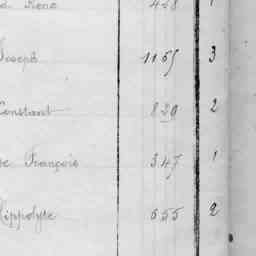 René 428 1
Joseph 1165 3
Constant 829 2
François 347 1
Hippolyte 655 2